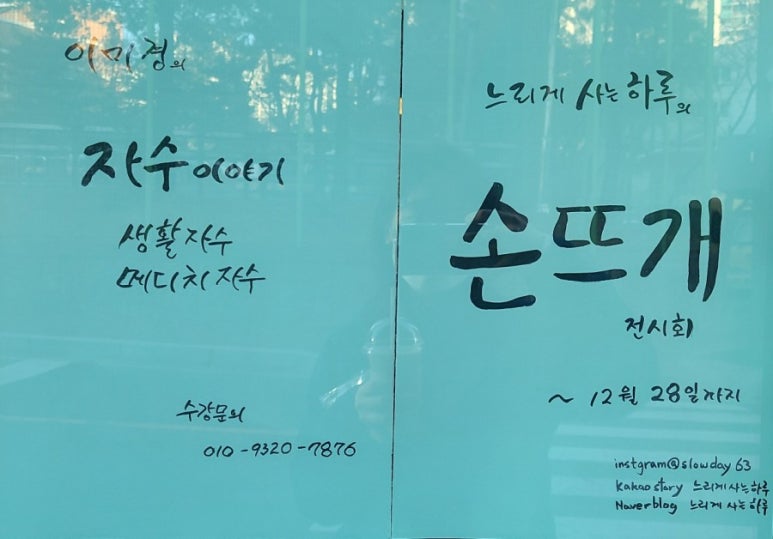 이미경의
자수이야기
생활자수
메디치자수
수강문의
010-9320-7876
느리게 사는 하루의
손뜨개
전시회
~ 12월 28일까지
instgram@slowday63
kakaostory 느리게사는하루
Naverblog 느리게 사는하루